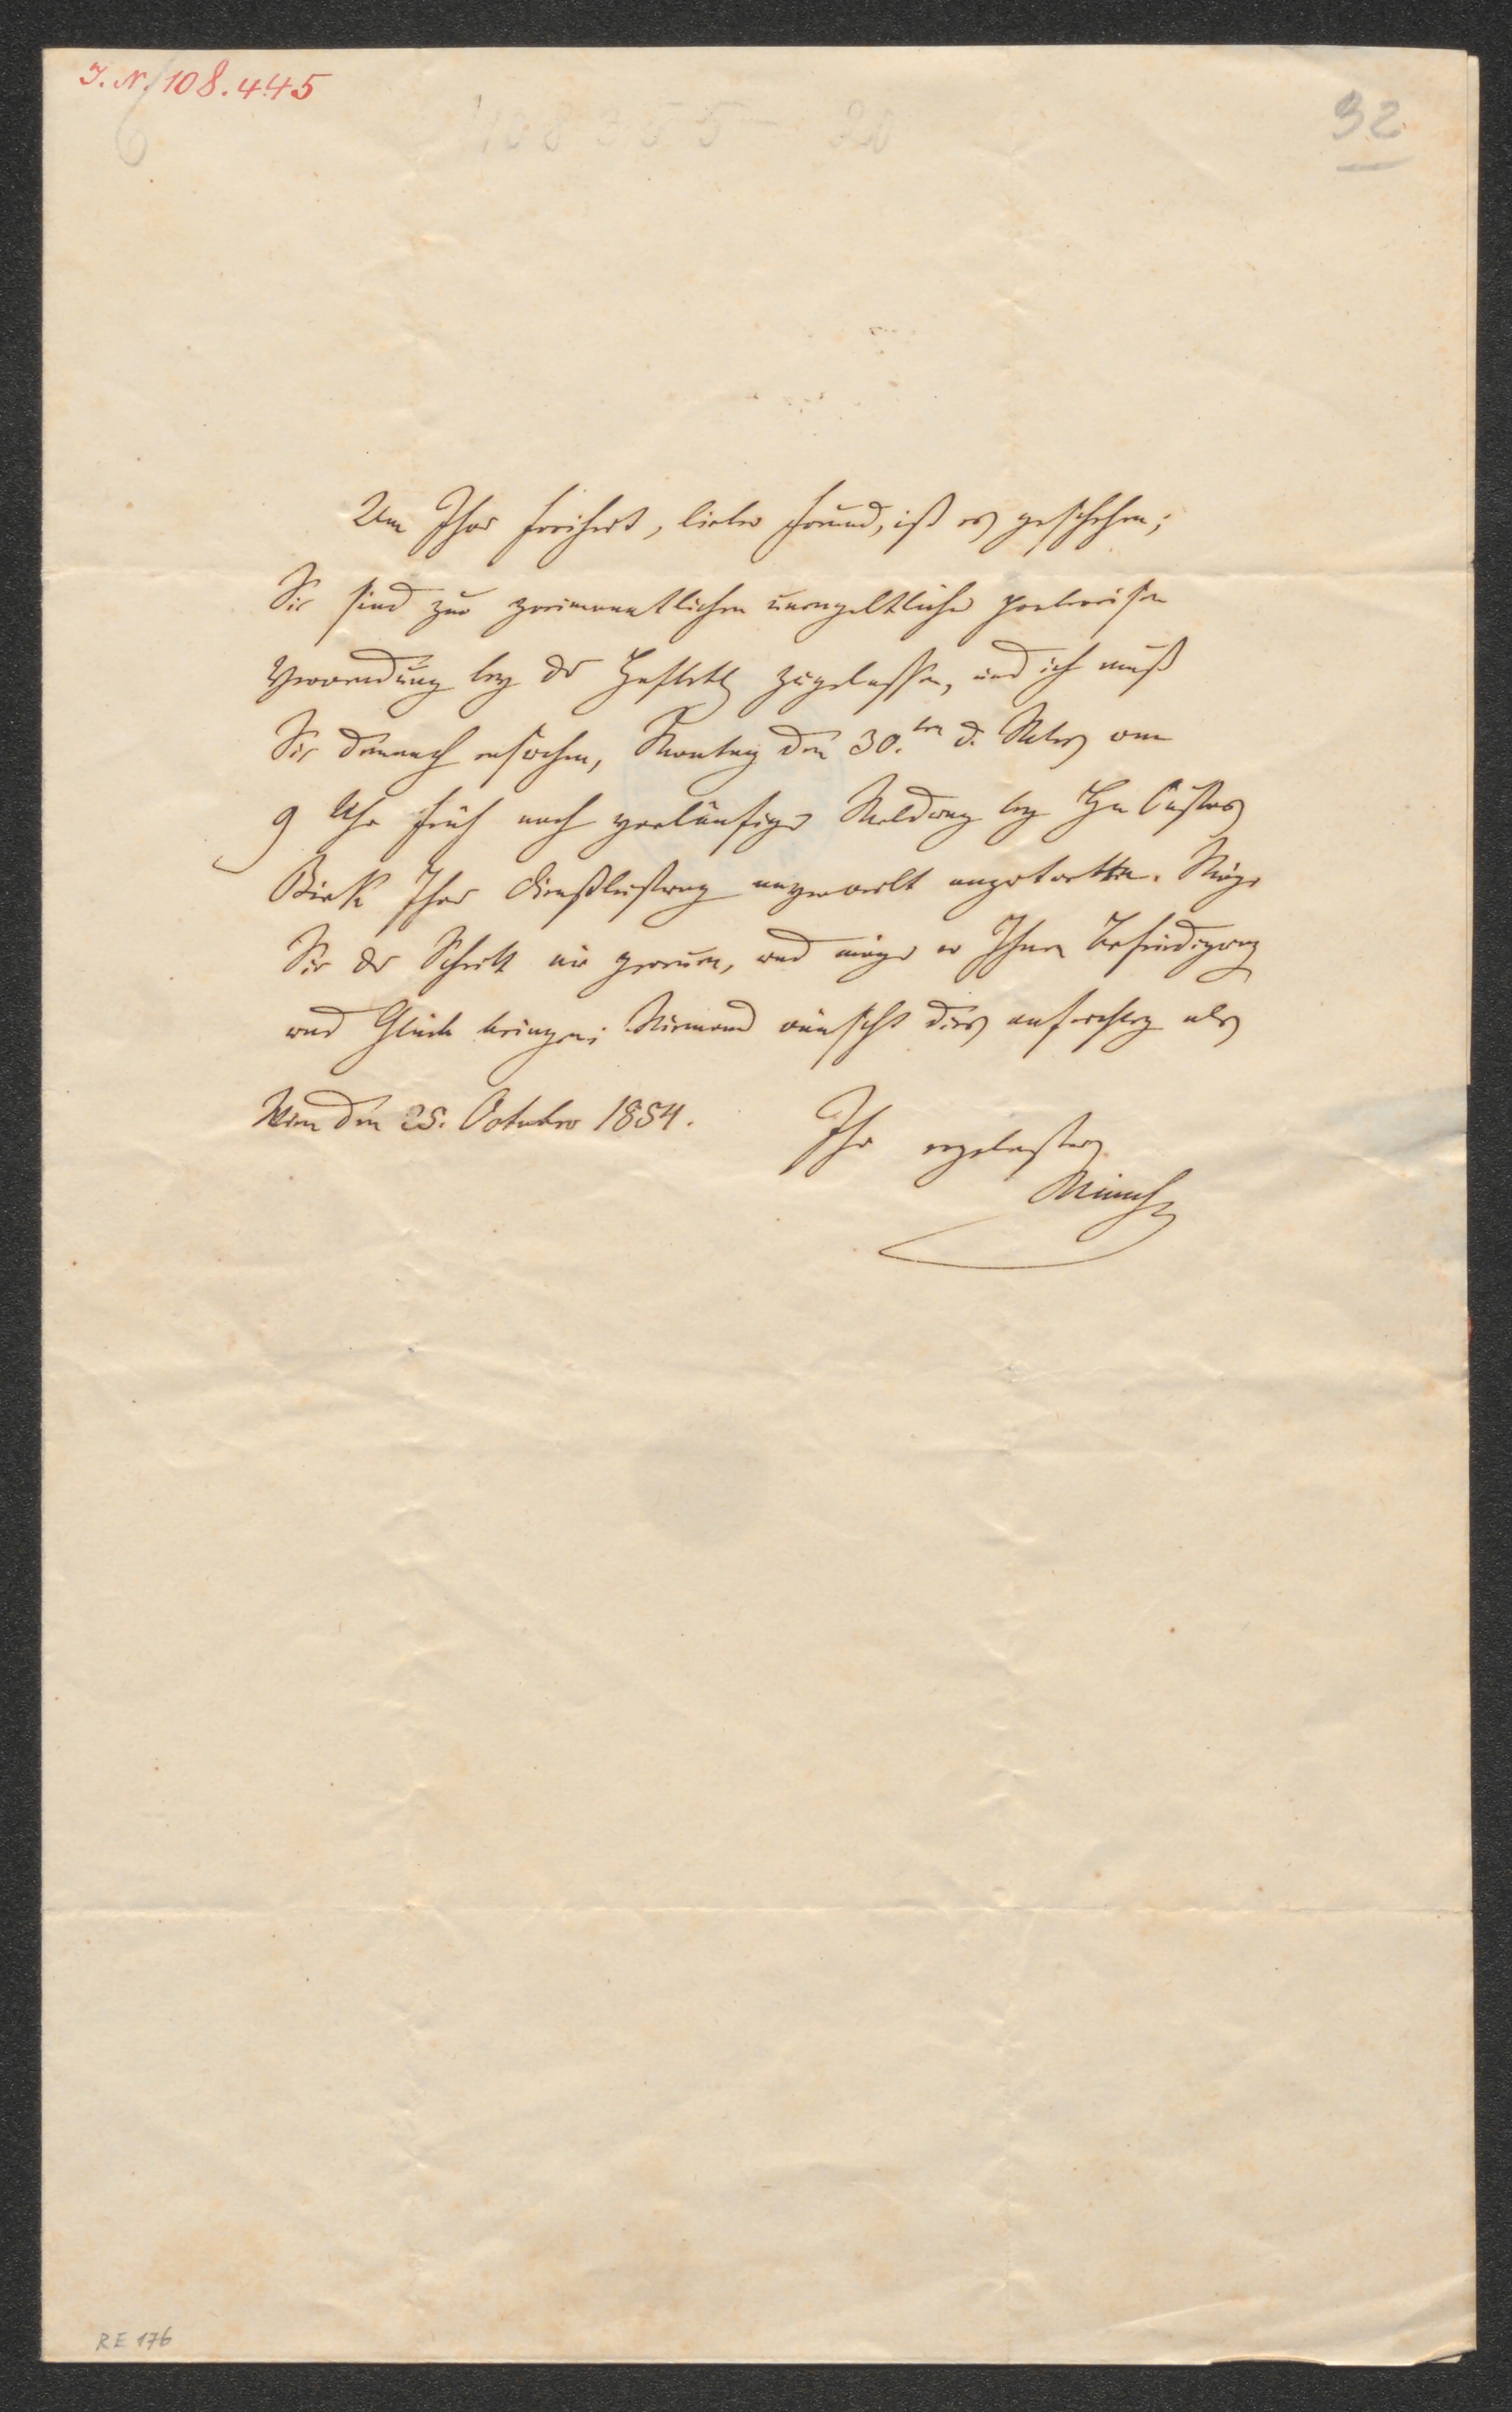 I. N. 108.445
6
108355 - 20
32
Um Ihre Freiheit, lieber Freund, ist es geschehen;
Sie sind zur zweimonatlichen unentgeltlichen probeweisen
Verwendung bey der Hofbibl. zugelassen, und ich muß
Sie demnach ersuchen, Montag den 30.ten d. Mts um
9 Uhr früh nach vorläufiger Meldung bey Hn Custos
Birk Ihre Dienstleistung angewerlt anzutretten. Möge
Sie der Schritt nie gereuen, und möge er Ihnen Befriedigung
und Glück bringen; Niemand wünscht dies aufrichtig als
Wien den 25. October 1854.
Ihr ergebenster
Münch
RE 176